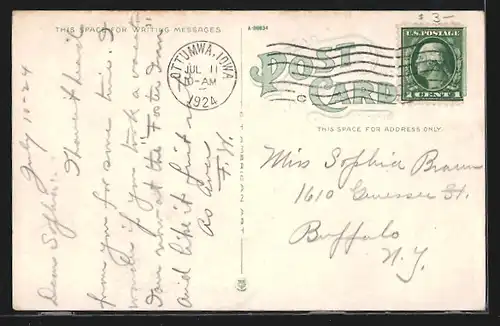 THIS SPACE FOR WRITING MESSAGES
A-98834
$ 3-
OTTUMWA, IOWA
JUL 11
10-AM
1924
POST CARD
U.S. POSTAGE
1 CENT 1
THIS SPACE FOR ADDRESS ONLY.
Miss Sophia Braun
1610 Genesee St.
Buffalo
N.Y.
July 10-24
Dear Sophia:
I haven't heard
from you for some time. I
wonder if you took a vacation
I am now at the "Foster Inn"
and like it first rate
As ever
F. W.